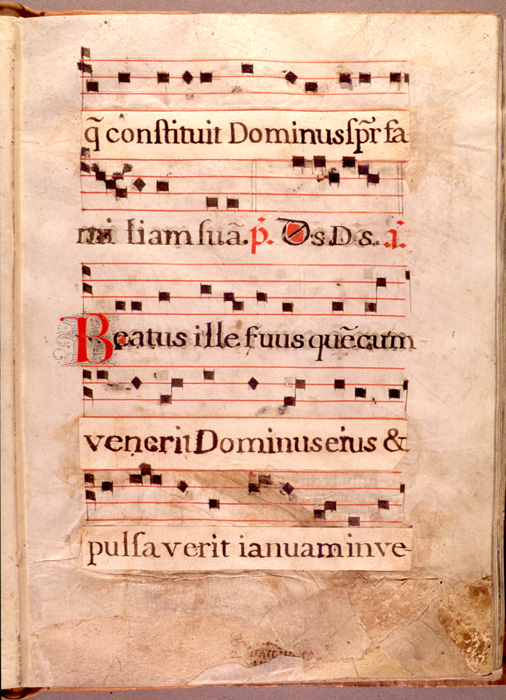 q̃ constituit Dominus sp̃r fa
mi liam suã. p̃. Ds. D s. ĩ.
Beatus ille fuus quẽcum
venerit Dominus eius &
pulsaverit ianuam inve-